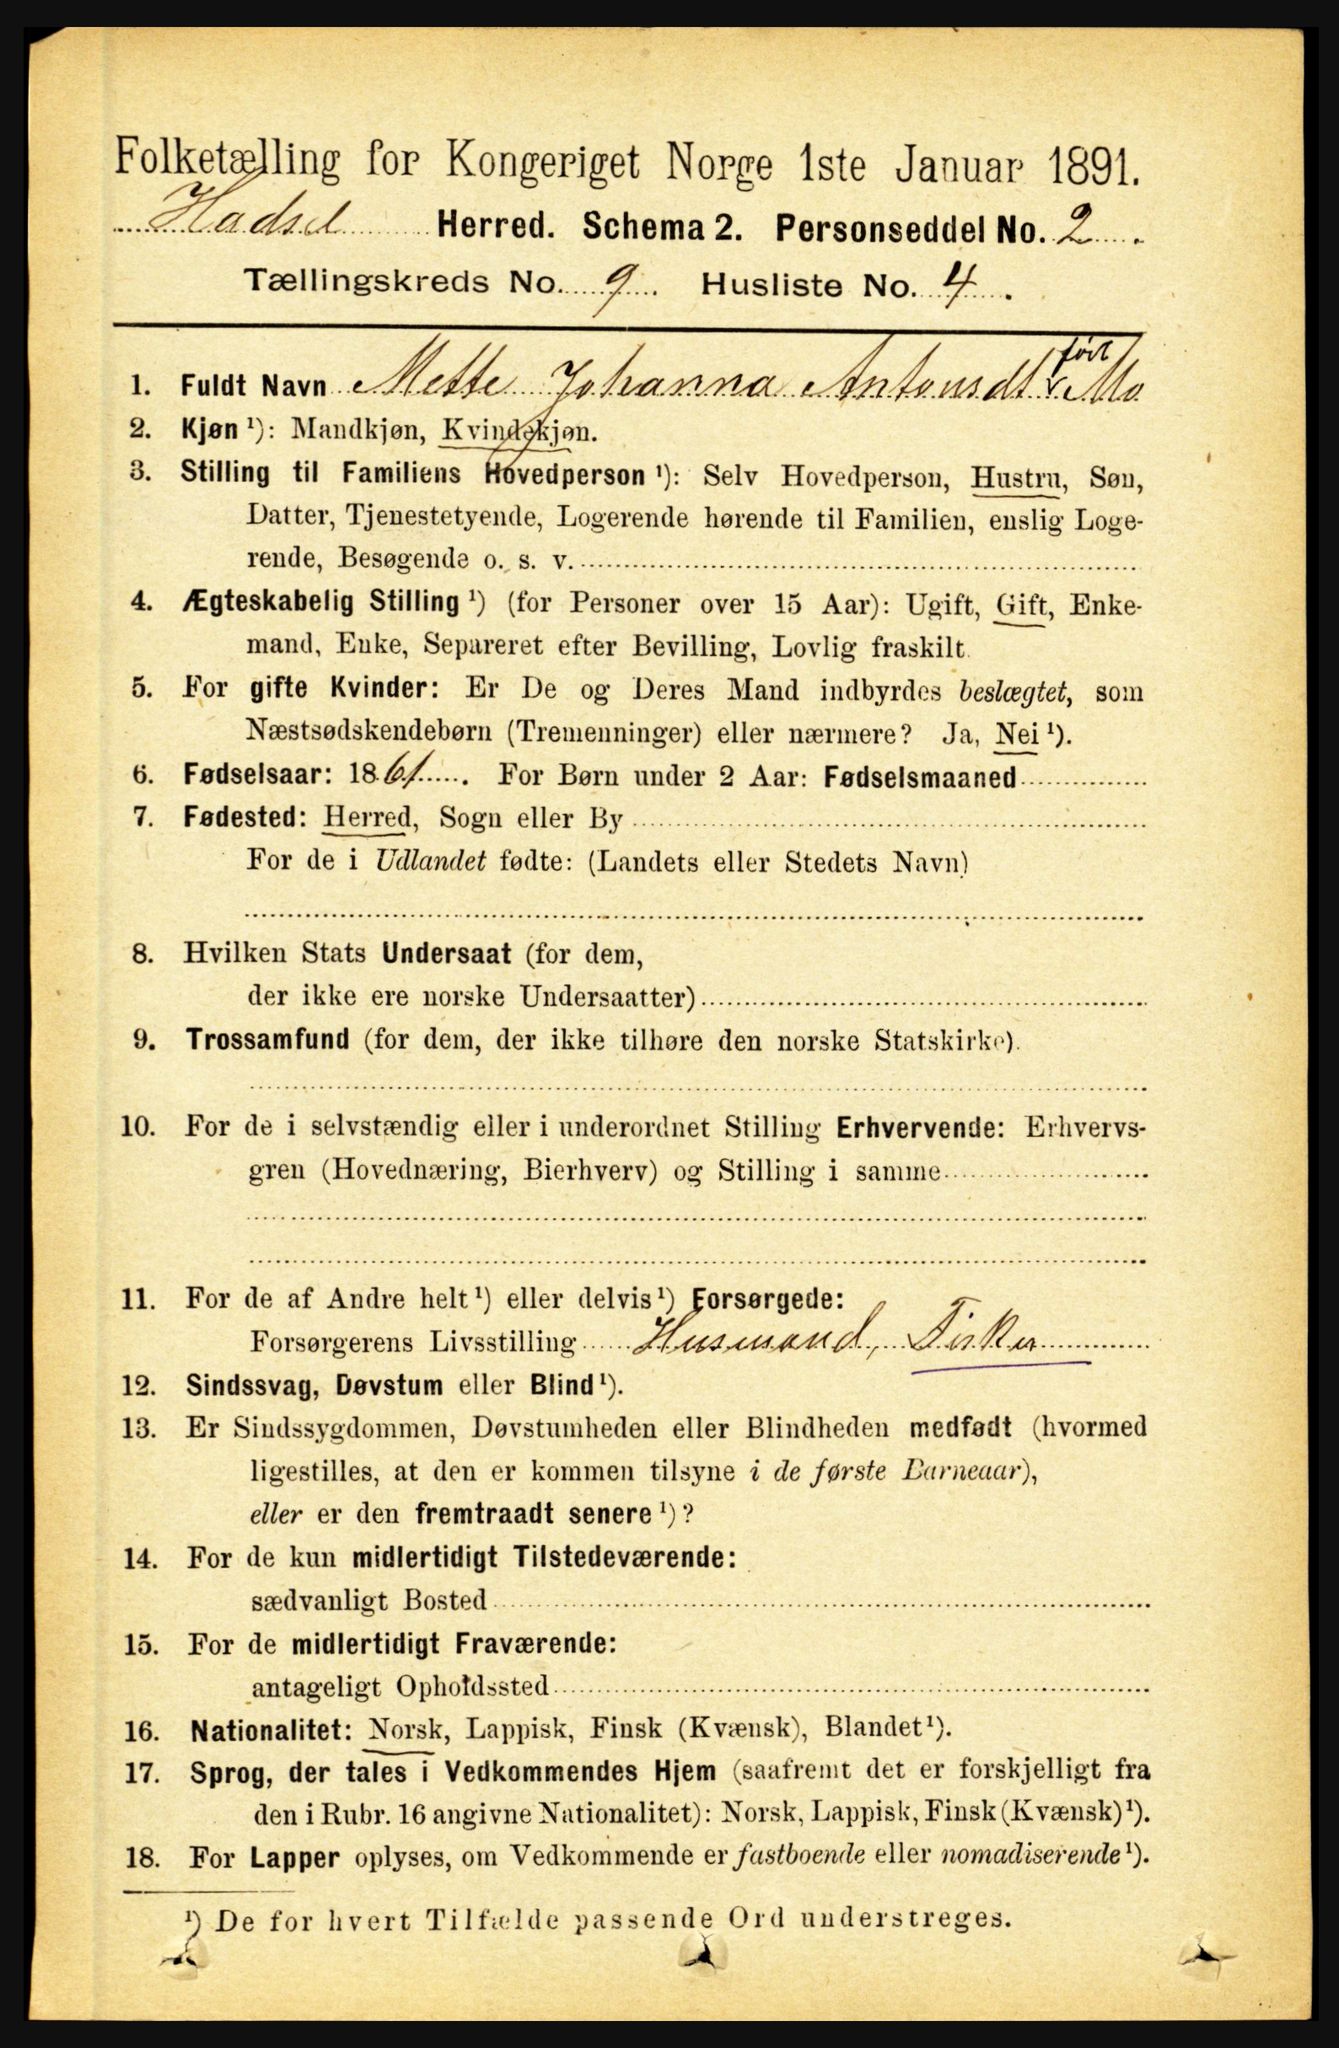 Folketælling for Kongeriget Norge 1ste Januar 1891.
Hadsel Herred. Schema 2. Personseddel No. 2.
Tællingskreds No. 9. Husliste No. 4.
født
1. Fuldt Navn Mette Johanna Antonsdtr Mo
2. Kjøn ¹): Mandkjøn, Kvindekjøn.
3. Stilling til Familiens Hovedperson ¹): Selv Hovedperson, Hustru, Søn,
Datter, Tjenestetyende, Logerende hørende til Familien, enslig Loge-
rende, Besøgende o. s. v.
4. Ægteskabelig Stilling ¹) (for Personer over 15 Aar): Ugift, Gift, Enke-
mand, Enke, Separeret efter Bevilling, Lovlig fraskilt.
5. For gifte Kvinder: Er De og Deres Mand indbyrdes beslægtet, som
Næstsødskendebørn (Tremenninger) eller nærmere? Ja, Nei ¹).
6. Fødselsaar: 1861. For Børn under 2 Aar: Fødselsmaaned
7. Fødested: Herred, Sogn eller By
For de i Udlandet fødte: (Landets eller Stedets Navn)
8. Hvilken Stats Undersaat (for dem,
der ikke ere norske Undersaatter)
9. Trossamfund (for dem, der ikke tilhøre den norske Statskirke).
10. For de i selvstændig eller i underordnet Stilling Erhvervende: Erhvervs-
gren (Hovednæring, Bierhverv) og Stilling i samme
11. For de af Andre helt ¹) eller delvis ¹) Forsørgede:
Forsørgerens Livsstilling Husmand, Fisker
12. Sindssvag, Døvstum eller Blind ¹).
13. Er Sindssygdommen, Døvstumheden eller Blindheden medfødt (hvormed
ligestilles, at den er kommen tilsyne i de første Barneaar),
eller er den fremtraadt senere ¹)?
14. For de kun midlertidigt Tilstedeværende:
sædvanligt Bosted
15. For de midlertidigt Fraværende:
antageligt Opholdssted
16. Nationalitet: Norsk, Lappisk, Finsk (Kvænsk), Blandet ¹).
17. Sprog, der tales i Vedkommendes Hjem (saafremt det er forskjelligt fra
den i Rubr. 16 angivne Nationalitet): Norsk, Lappisk, Finsk (Kvænsk) ¹).
18. For Lapper oplyses, om Vedkommende er fastboende eller nomadiserende ¹).
¹) De for hvert Tilfælde passende Ord understreges.